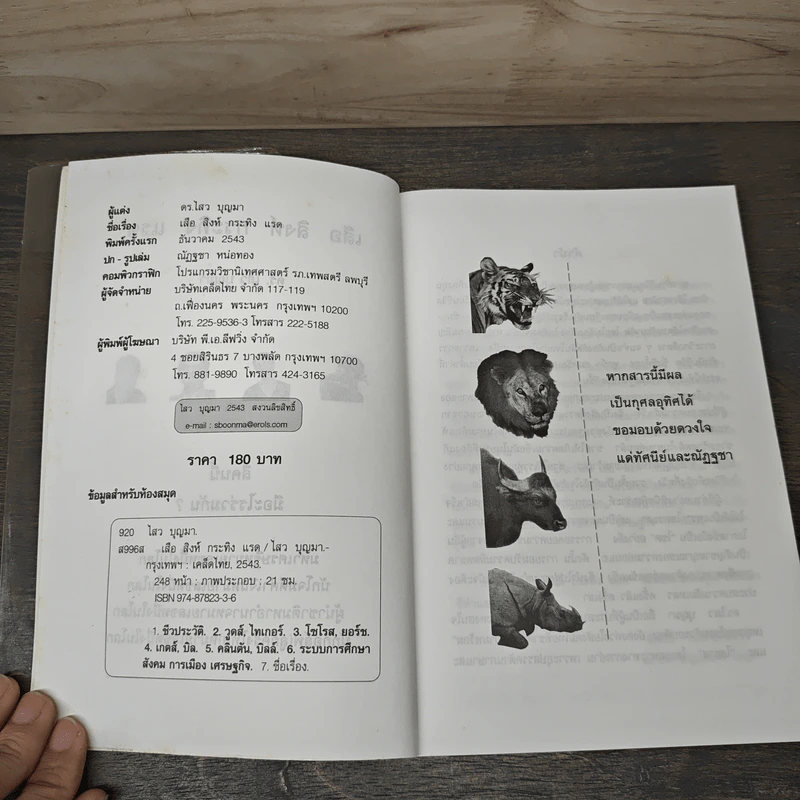 ผู้แต่ง ดร.ไสว บุญมา
ชื่อเรื่อง เสือ สิงห์ กระทิง แรด
พิมพ์ครั้งแรก ธันวาคม 2543
ปก - รูปเล่ม ณัฏฐชา หน่อทอง
คอมพิวกราฟิก โปรแกรมวิชานิเทศศาสตร์ รภ.เทพสตรี ลพบุรี
ผู้จัดจำหน่าย บริษัทเคล็ดไทย จำกัด 117-119
ถ.เฟื่องนคร พระนคร กรุงเทพฯ 10200
โทร. 225-9536-3 โทรสาร 222-5188
ผู้พิมพ์ผู้โฆษณา บริษัท พี.เอ.ลีฟวิ่ง จำกัด
4 ซอยสิรินธร 7 บางพลัด กรุงเทพฯ 10700
โทร. 881-9890 โทรสาร 424-3165
ไสว บุญมา 2543 สงวนลิขสิทธิ์
e-mail : sboonma@erols.com
ราคา 180 บาท
ข้อมูลสำหรับห้องสมุด
920 ไสว บุญมา.
ส996ส เสือ สิงห์ กระทิง แรด / ไสว บุญมา.-
กรุงเทพฯ : เคล็ดไทย, 2543.
248 หน้า : ภาพประกอบ : 21 ซม.
ISBN 974-87823-3-6
1. ชีวประวัติ. 2. วูดส์, ไทเกอร์. 3. โซโรส, ยอร์ช.
4. เกตส์, บิล. 5. คลินตัน, บิลล์. 6. ระบบการศึกษา
สังคม การเมือง เศรษฐกิจ. 7. ชื่อเรื่อง.
หากสารนี้มีผล
เป็นกุศลอุทิศได้
ขอมอบด้วยดวงใจ
แด่ทัศนีย์และณัฏฐชา